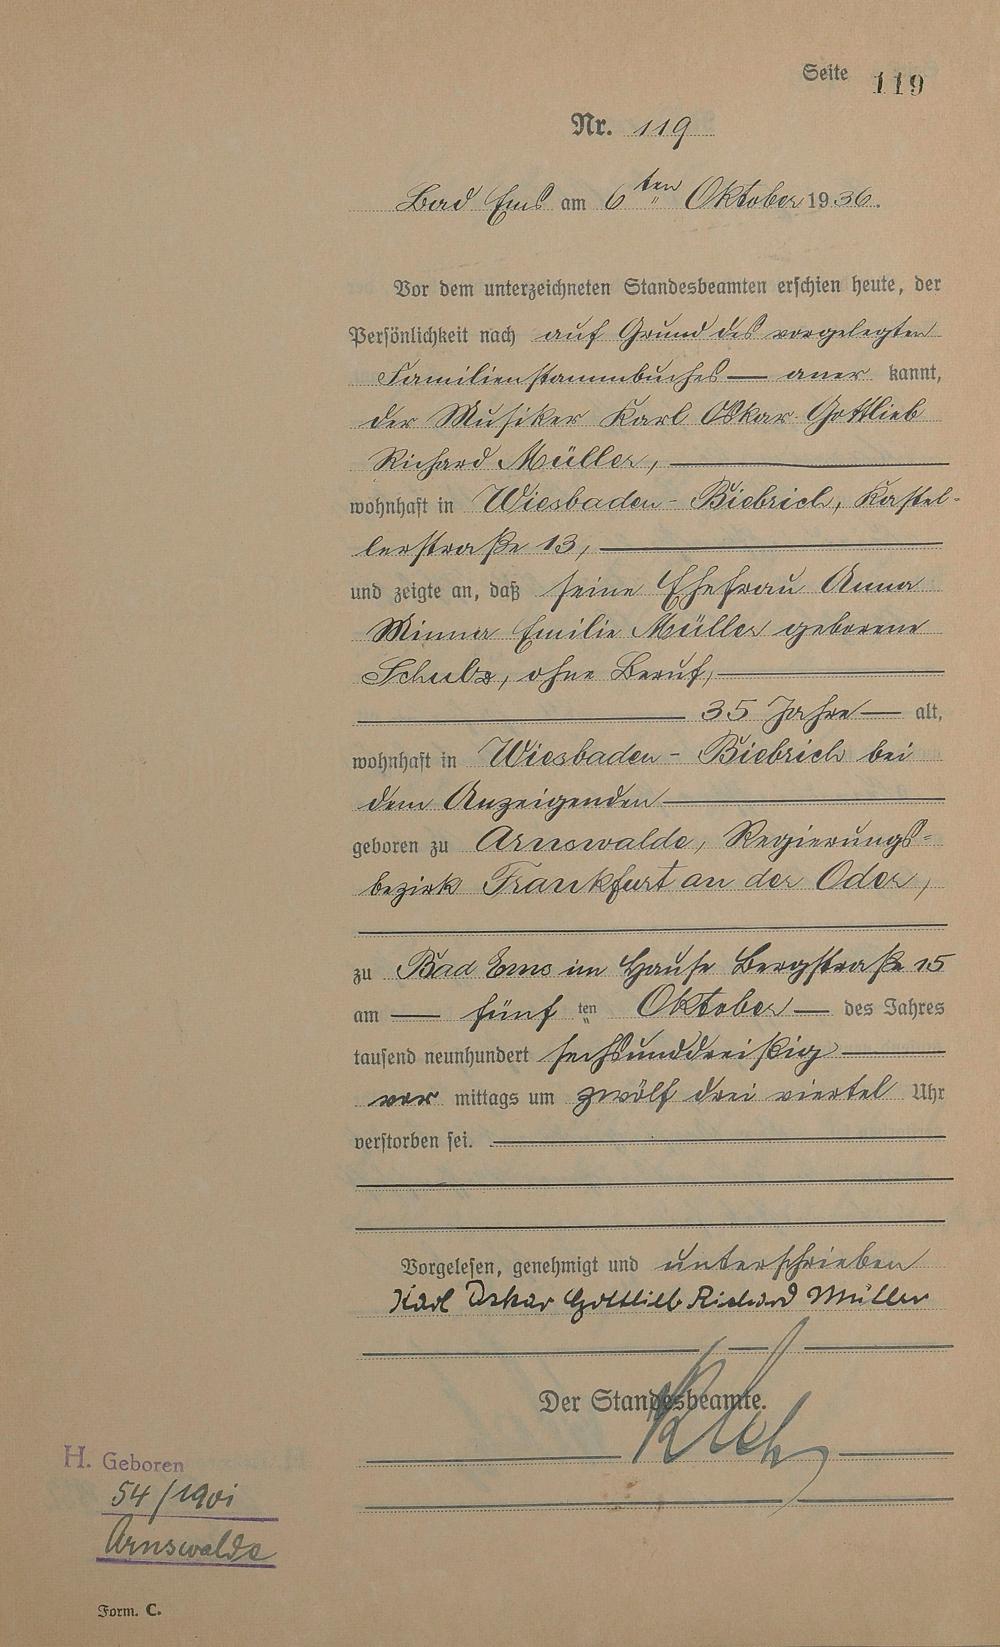 Seite 119
Nr. 119
Bad Ems am 6ten Oktober 1936.
Vor dem unterzeichneten Standesbeamten erschien heute, der
Persönlichkeit nach auf Grund des vorgelegten
Familienstammbuches — aner kannt,
der Musiker Karl Oskar Gottlieb
Richard Müller,
wohnhaft in Wiesbaden - Biebrich, Kastel-
lerstraße 13,
und zeigte an, daß seine Ehefrau Anna
Minna Emilie Müller geborene
Schulz, ohne Beruf,
35 Jahre — alt,
wohnhaft in Wiesbaden - Biebrich bei
dem Anzeigenden
geboren zu Arnswalde, Regierungs-
bezirk Frankfurt an der Oder,
zu Bad Ems im Hause Bergstraße 15
am — fünf ten Oktober — des Jahres
tausend neunhundert sechsunddreißig
vor mittags um zwölf drei viertel Uhr
verstorben sei.
Vorgelesen, genehmigt und unterschrieben
Karl Oskar Gottlieb Richard Müller
Der Standesbeamte.
H. Geboren
54/1901
Arnswalde
Form. C.